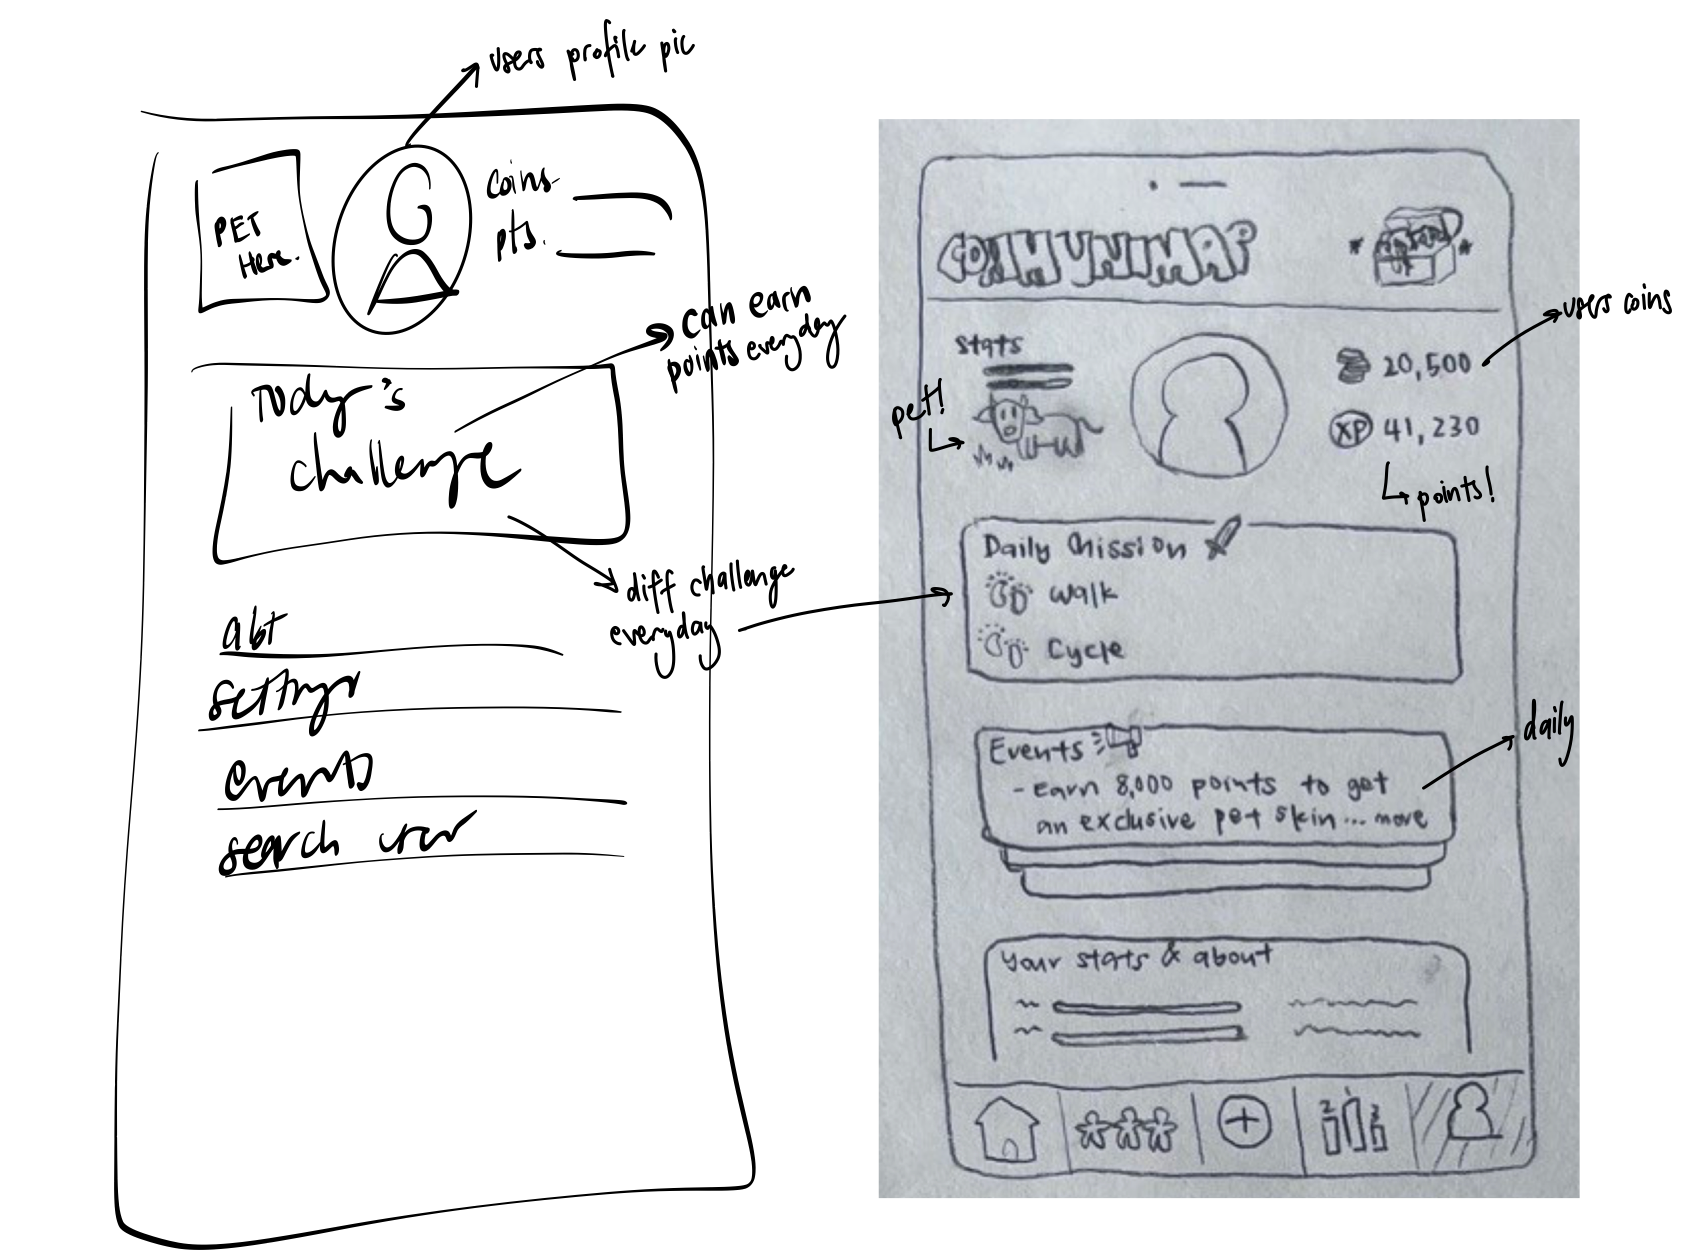 users profile pic
PET
Here.
coins
pts.
can earn
points everyday
Today's
challenge
diff challenge
everyday
abt
settings
events
search user
COMMUNIMAP
stats
pet!
20,500
users coins
XP 41,230
points!
Daily Mission
Walk
Cycle
Events
- Earn 8,000 points to get
an exclusive pet skin... more
daily
Your stats & about
2 1 3